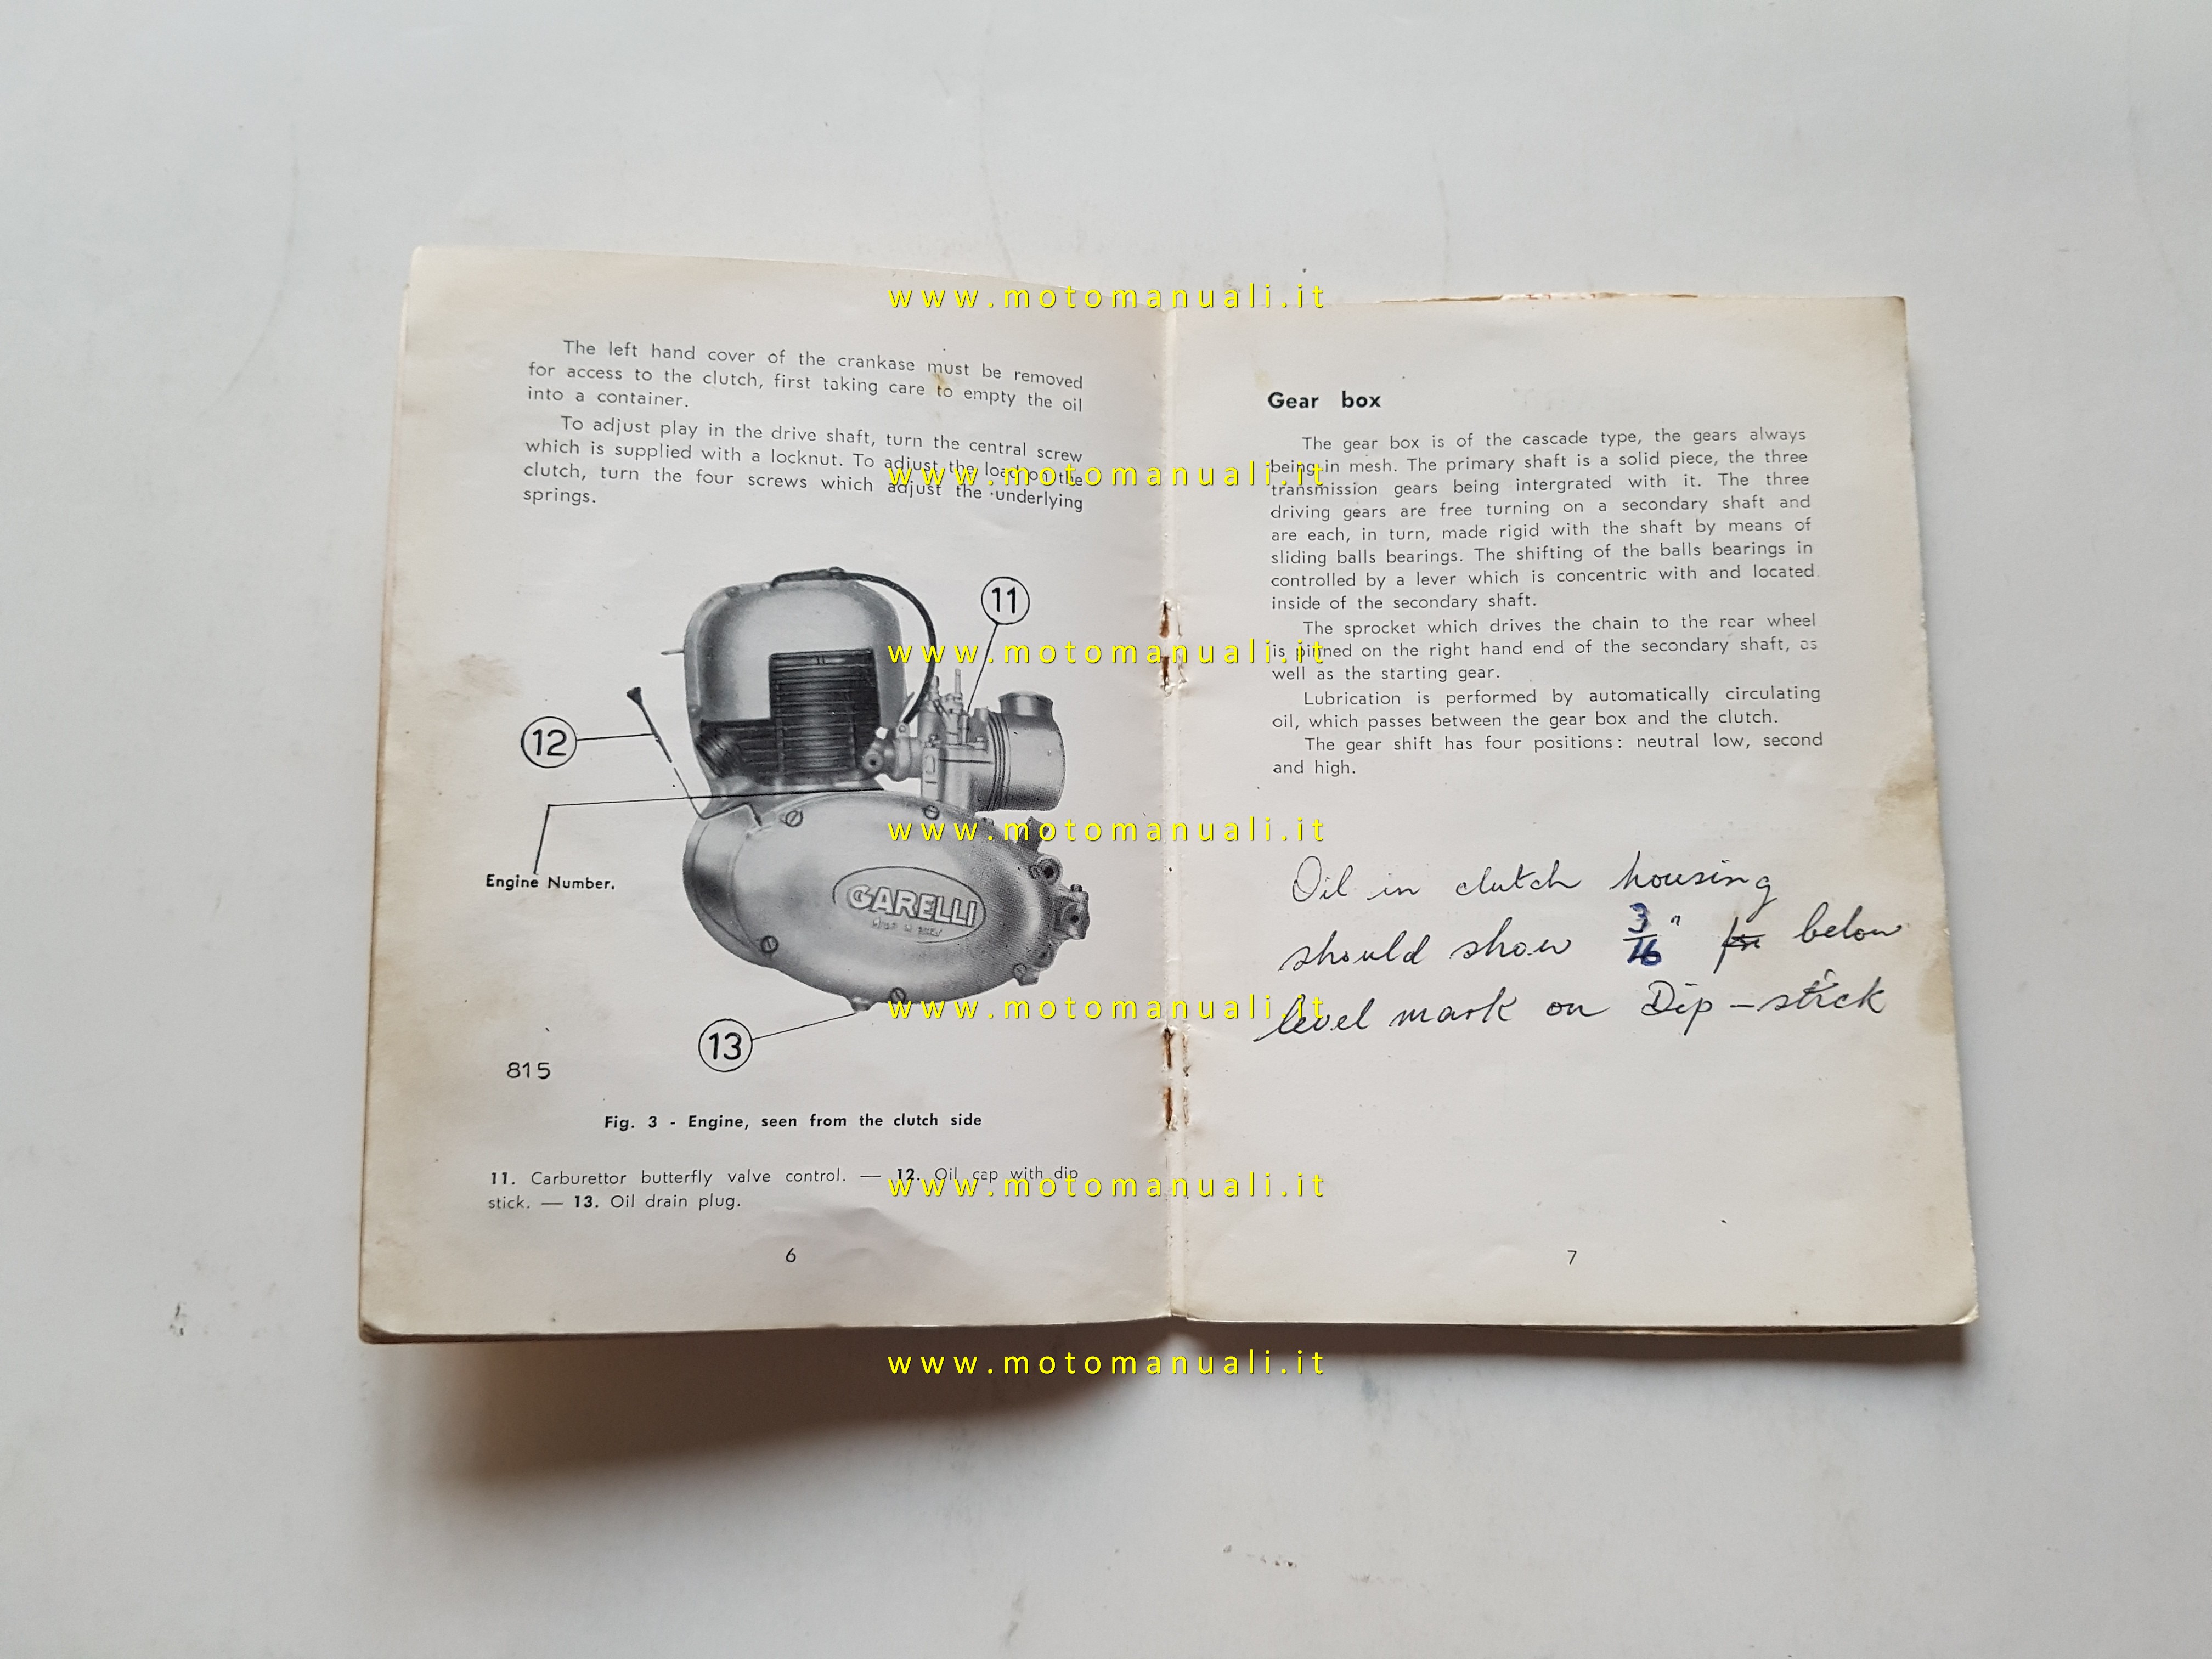 The left hand cover of the crankase must be removed
for access to the clutch, first taking care to empty the oil
into a container.
To adjust play in the drive shaft, turn the central screw
which is supplied with a locknut. To adjust the load on the
clutch, turn the four screws which adjust the underlying
springs.
11
12
Engine Number.
GARELLI
13
815
Fig. 3 - Engine, seen from the clutch side
11. Carburettor butterfly valve control. — 12. Oil cap with dip
stick. — 13. Oil drain plug.
6
Gear box
The gear box is of the cascade type, the gears always
being in mesh. The primary shaft is a solid piece, the three
transmission gears being intergrated with it. The three
driving gears are free turning on a secondary shaft and
are each, in turn, made rigid with the shaft by means of
sliding balls bearings. The shifting of the balls bearings in
controlled by a lever which is concentric with and located
inside of the secondary shaft.
The sprocket which drives the chain to the rear wheel
is pinned on the right hand end of the secondary shaft, as
well as the starting gear.
Lubrication is performed by automatically circulating
oil, which passes between the gear box and the clutch.
The gear shift has four positions: neutral low, second
and high.
Oil in clutch housing
should show 3/16" below
level mark on Dip-stick
7
www.motomanuali.it
www.motomanuali.it
www.motomanuali.it
www.motomanuali.it
www.motomanuali.it
www.motomanuali.it
www.motomanuali.it